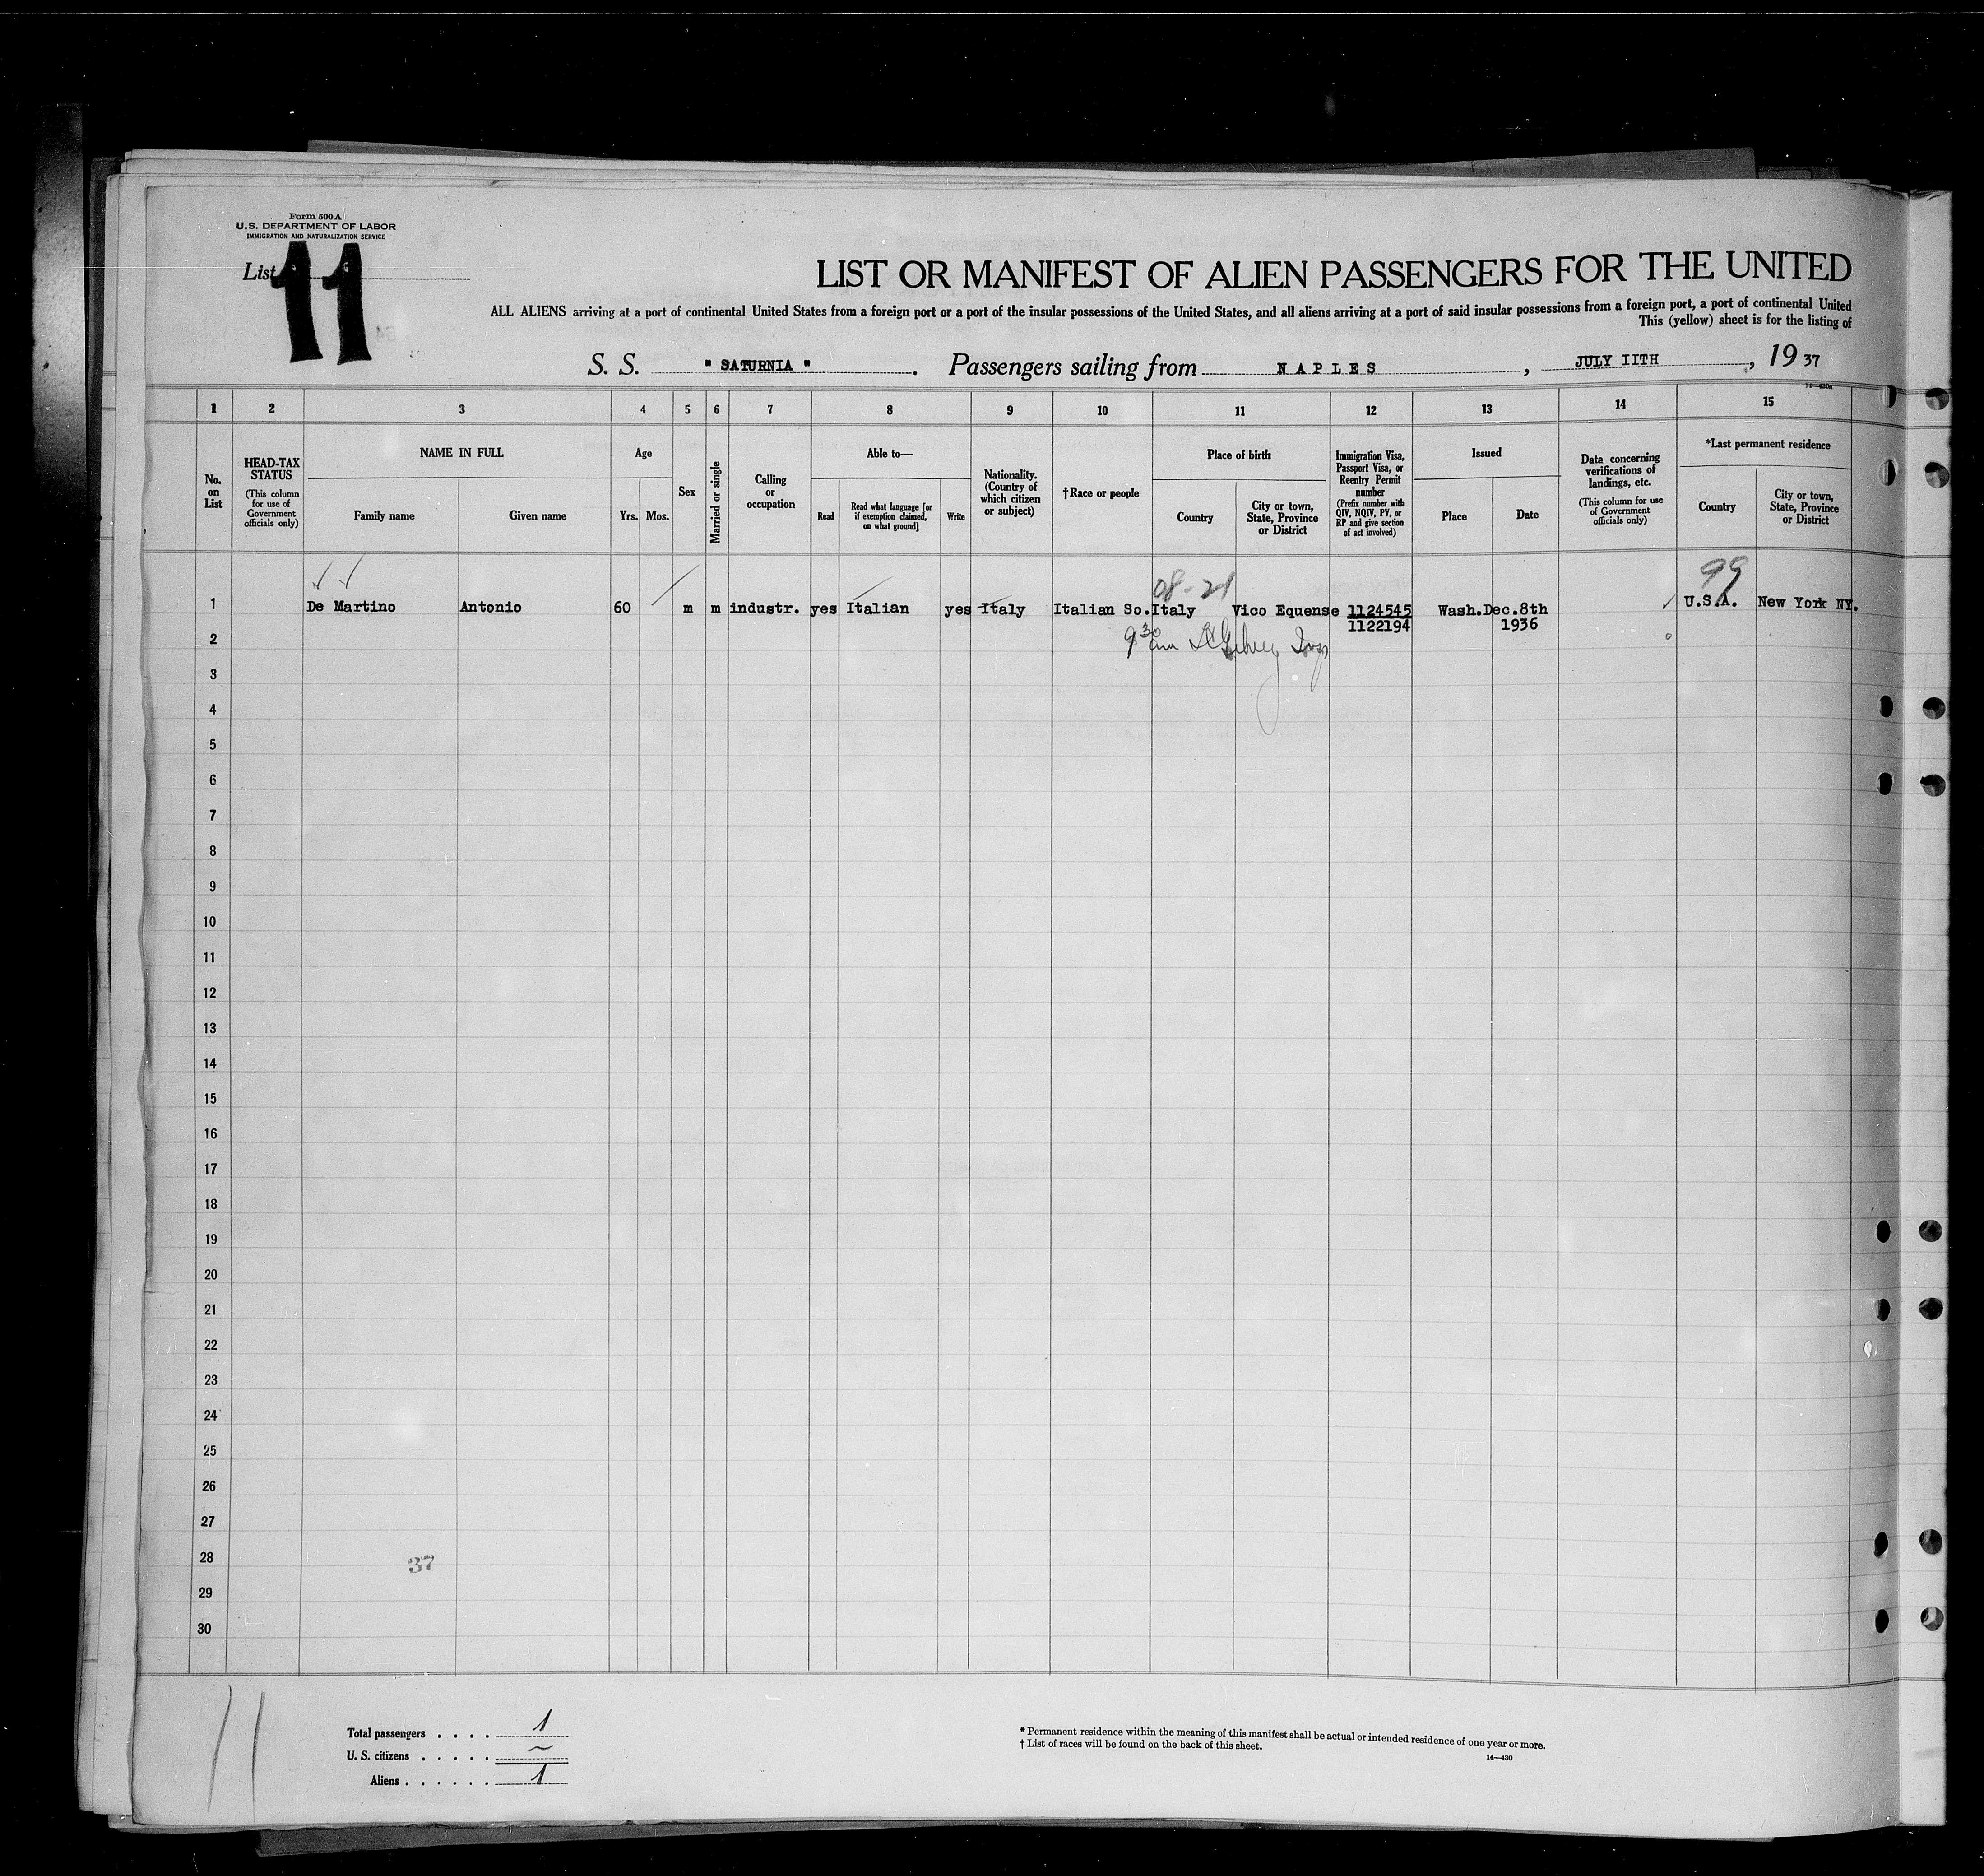 Form 500 A
U.S. DEPARTMENT OF LABOR
IMMIGRATION AND NATURALIZATION SERVICE
List 11
LIST OR MANIFEST OF ALIEN PASSENGERS FOR THE UNITED
ALL ALIENS arriving at a port of continental United States from a foreign port or a port of the insular possessions of the United States, and all aliens arriving at a port of said insular possessions from a foreign port, a port of continental United
This (yellow) sheet is for the listing of
S. S. " SATURNIA " . Passengers sailing from NAPLES , JULY IITH , 19 37
14—430a
1 2 3 4 5 6 7 8 9 10 11 12 13 14 15
No. on List
HEAD-TAX STATUS
(This column for use of Government officials only)
NAME IN FULL
Family name
Given name
Age
Yrs.
Mos.
Sex
Married or single
Calling or occupation
Able to—
Read
Read what language [or if exemption claimed, on what ground]
Write
Nationality. (Country of which citizen or subject)
†Race or people
Place of birth
Country
City or town, State, Province or District
Immigration Visa, Passport Visa, or Reentry Permit number
(Prefix number with QIV, NQIV, PV, or RP and give section of act involved)
Issued
Place
Date
Data concerning verifications of landings, etc.
(This column for use of Government officials only)
*Last permanent residence
Country
City or town, State, Province or District
08-21
99
1 De Martino Antonio 60 m m industr. yes Italian yes Italy Italian So. Italy Vico Equense 1124545 Wash. Dec.8th U.S.A. New York NY.
1122194 1936
2
9 30
3
4
5
6
7
8
9
10
11
12
13
14
15
16
17
18
19
20
21
22
23
24
25
26
27
28
37
29
30
11
Total passengers . . . . 1
U. S. citizens . . . . . ~
Aliens . . . . . . 1
* Permanent residence within the meaning of this manifest shall be actual or intended residence of one year or more.
† List of races will be found on the back of this sheet.
14—430